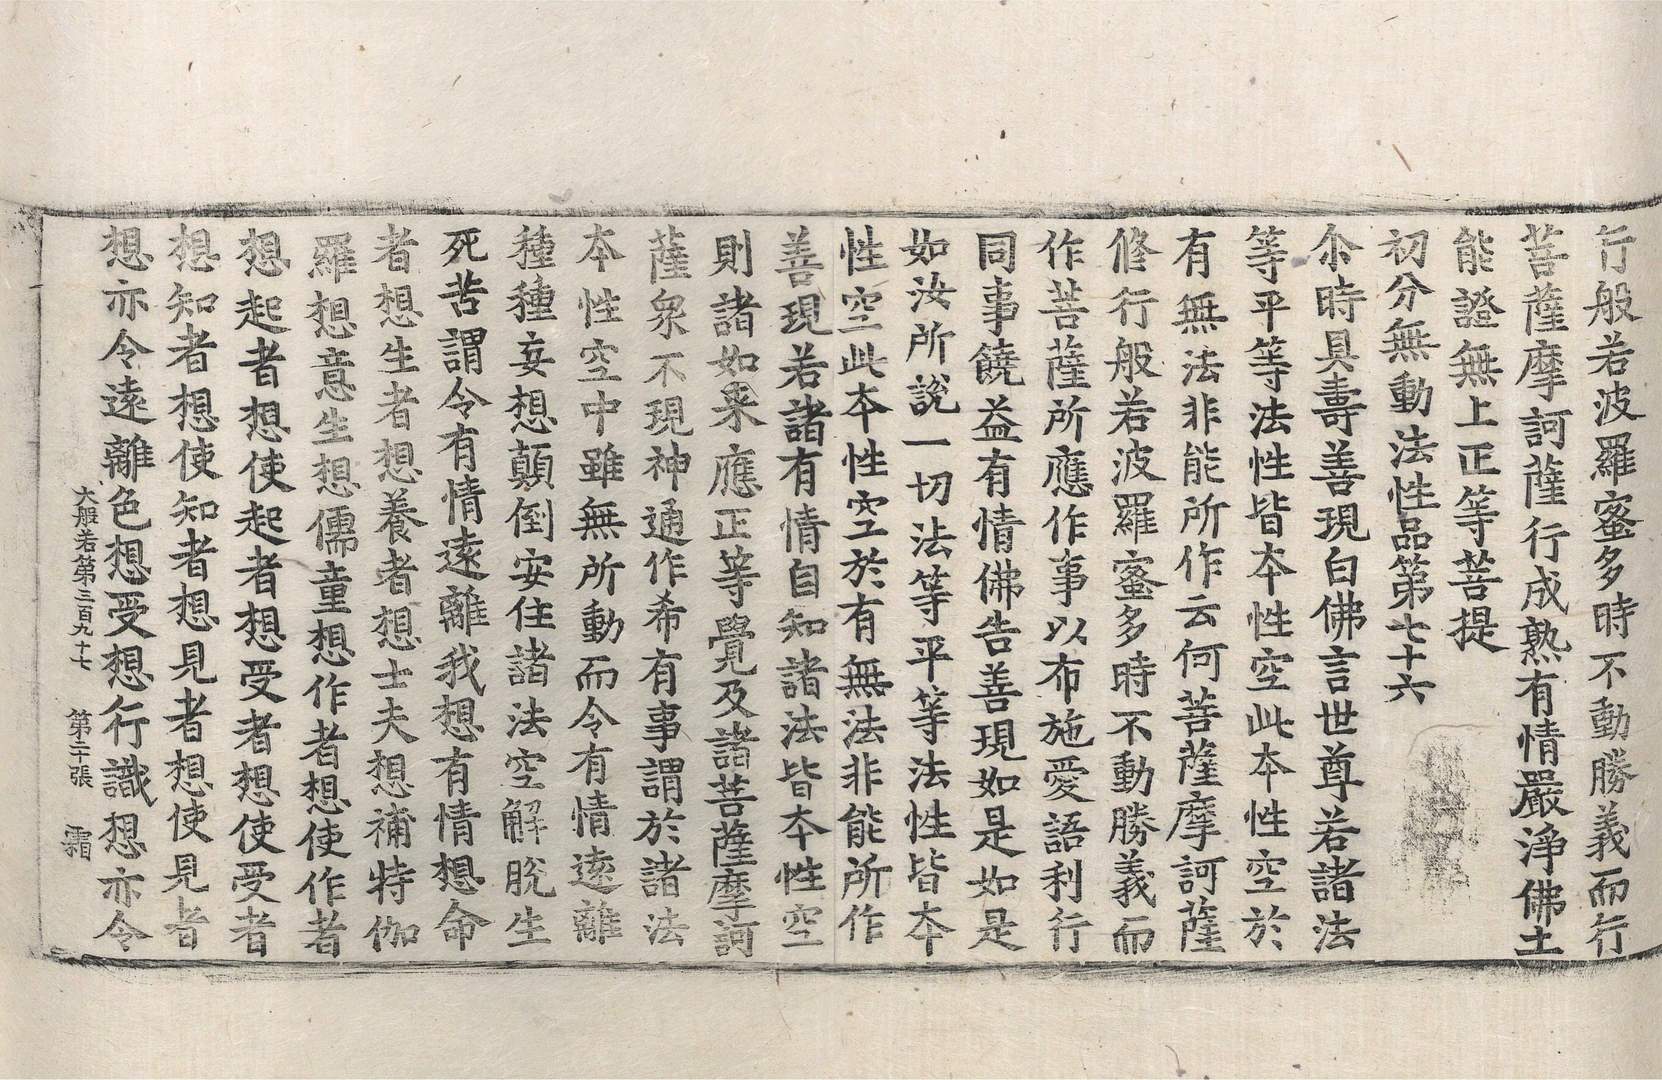 行般若波羅蜜多時不動勝義而行
菩薩摩訶薩行成熟有情嚴淨佛土
能證無上正等菩提
初分無動法性品第七十六
尒時具壽善現白佛言世尊若諸法
等平等法性皆本性空此本性空於
有無法非能所作云何菩薩摩訶薩
修行般若波羅蜜多時不動勝義而
作菩薩所應作事以布施愛語利行
同事饒益有情佛告善現如是如是
如汝所說一切法等平等法性皆本
性空此本性空於有無法非能所作
善現若諸有情自知諸法皆本性空
則諸如来應正等覺及諸菩薩摩訶
薩衆不現神通作希有事謂於諸法
本性空中雖無所動而令有情遠離
種種妄想顛倒安住諸法空解脫生
死苦謂令有情遠離我想有情想命
者想生者想養者想士夫想補特伽
羅想意生想儒童想作者想使作者
想起者想使起者想受者想使受者
想知者想使知者想見者想使見者
想亦令遠離色想受想行識想亦令
大般若第三百九十七 第二十張 霜